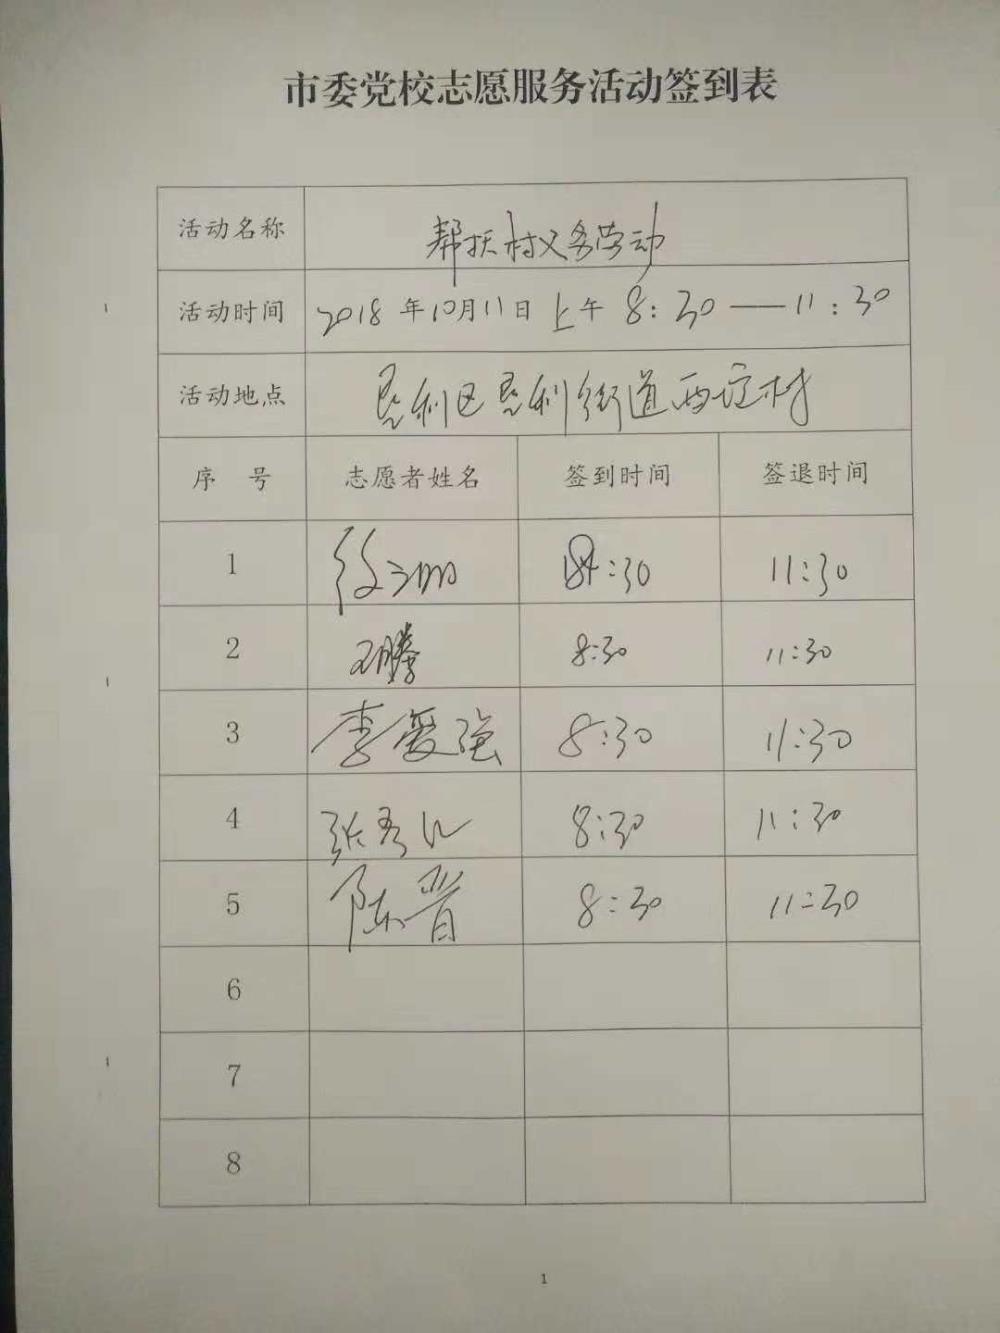 市委党校志愿服务活动签到表
活动名称 帮扶村义务劳动
活动时间 2018年10月11日上午8:30——11:30
活动地点 垦利区垦利街道西宋村
序号 志愿者姓名 签到时间 签退时间
1 8:30 11:30
2 王腾 8:30 11:30
3 李爱强 8:30 11:30
4 张 8:30 11:30
5 陈晋 8:30 11:30
6
7
8
1